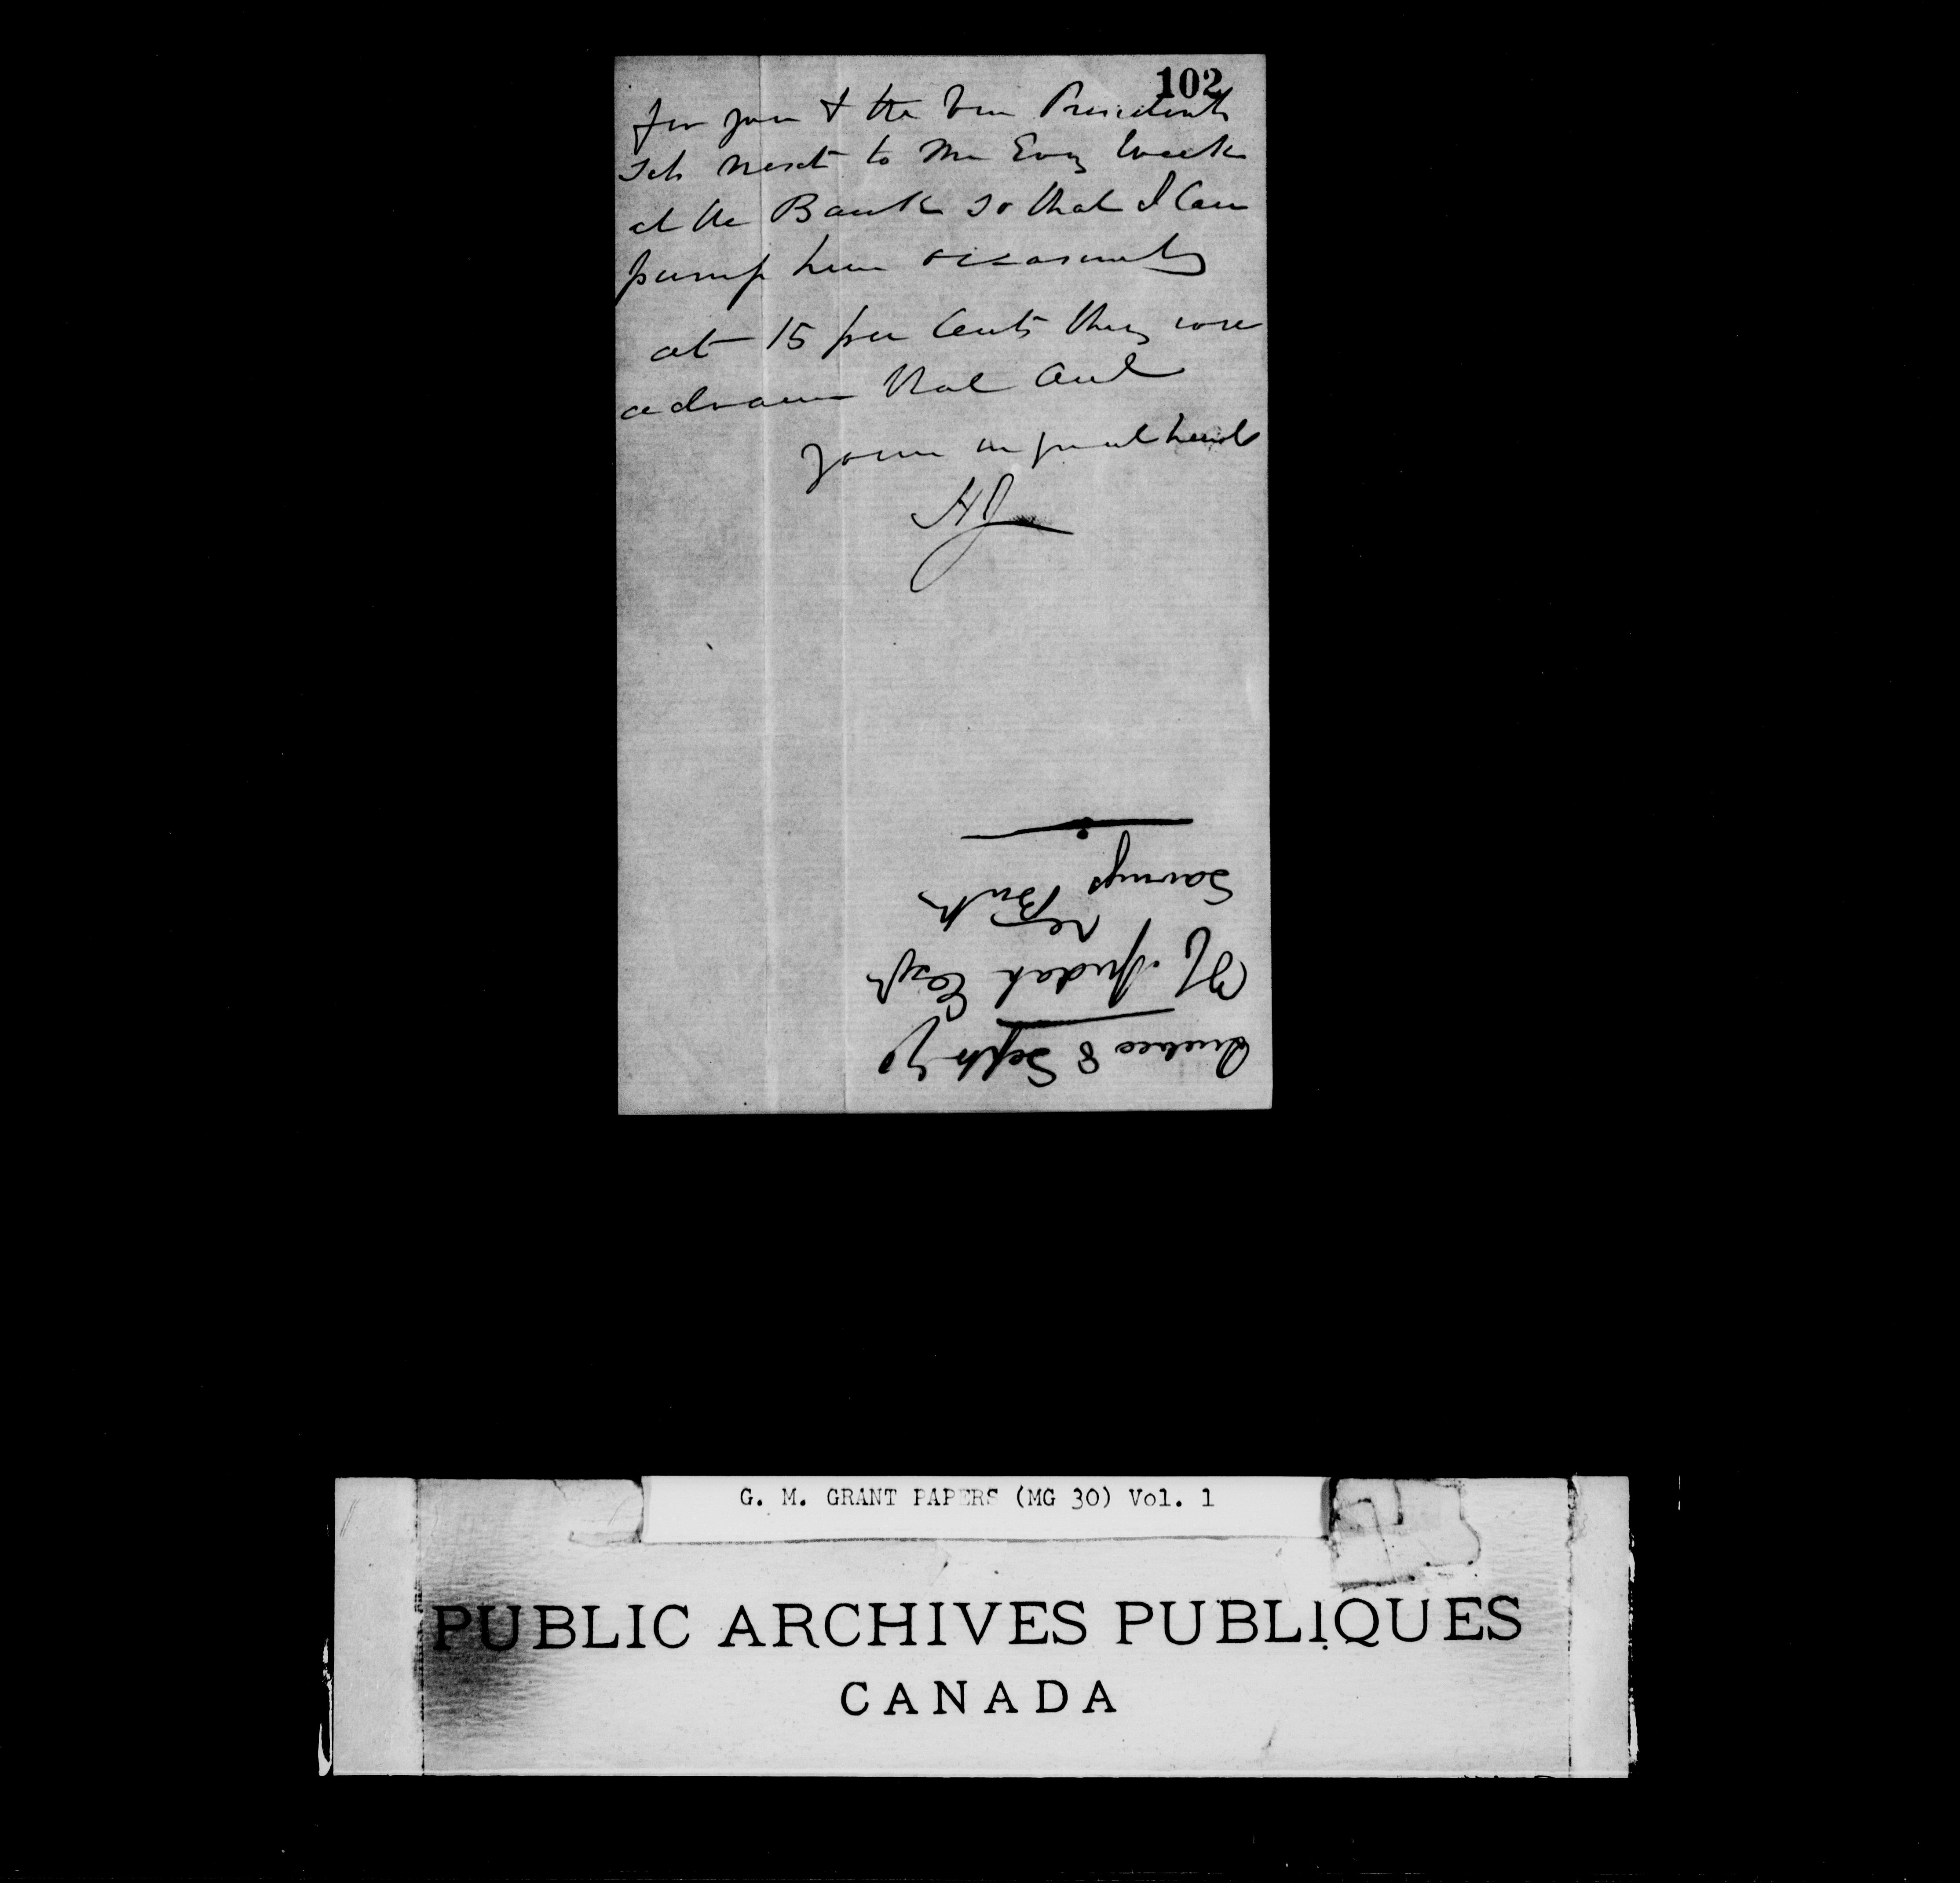 102
for you & the Vice Presidents
sits next to me Evy Week
at the Bank so that I can
pump him occasionally
at 15 per Cents they wou
advance that and
yours in great haste
HJ
Quebec 8 Septr 70
H. Judah Esqr
re
Savings Bank
G. M. GRANT PAPERS (MG 30) Vol. 1
PUBLIC ARCHIVES PUBLIQUES
CANADA